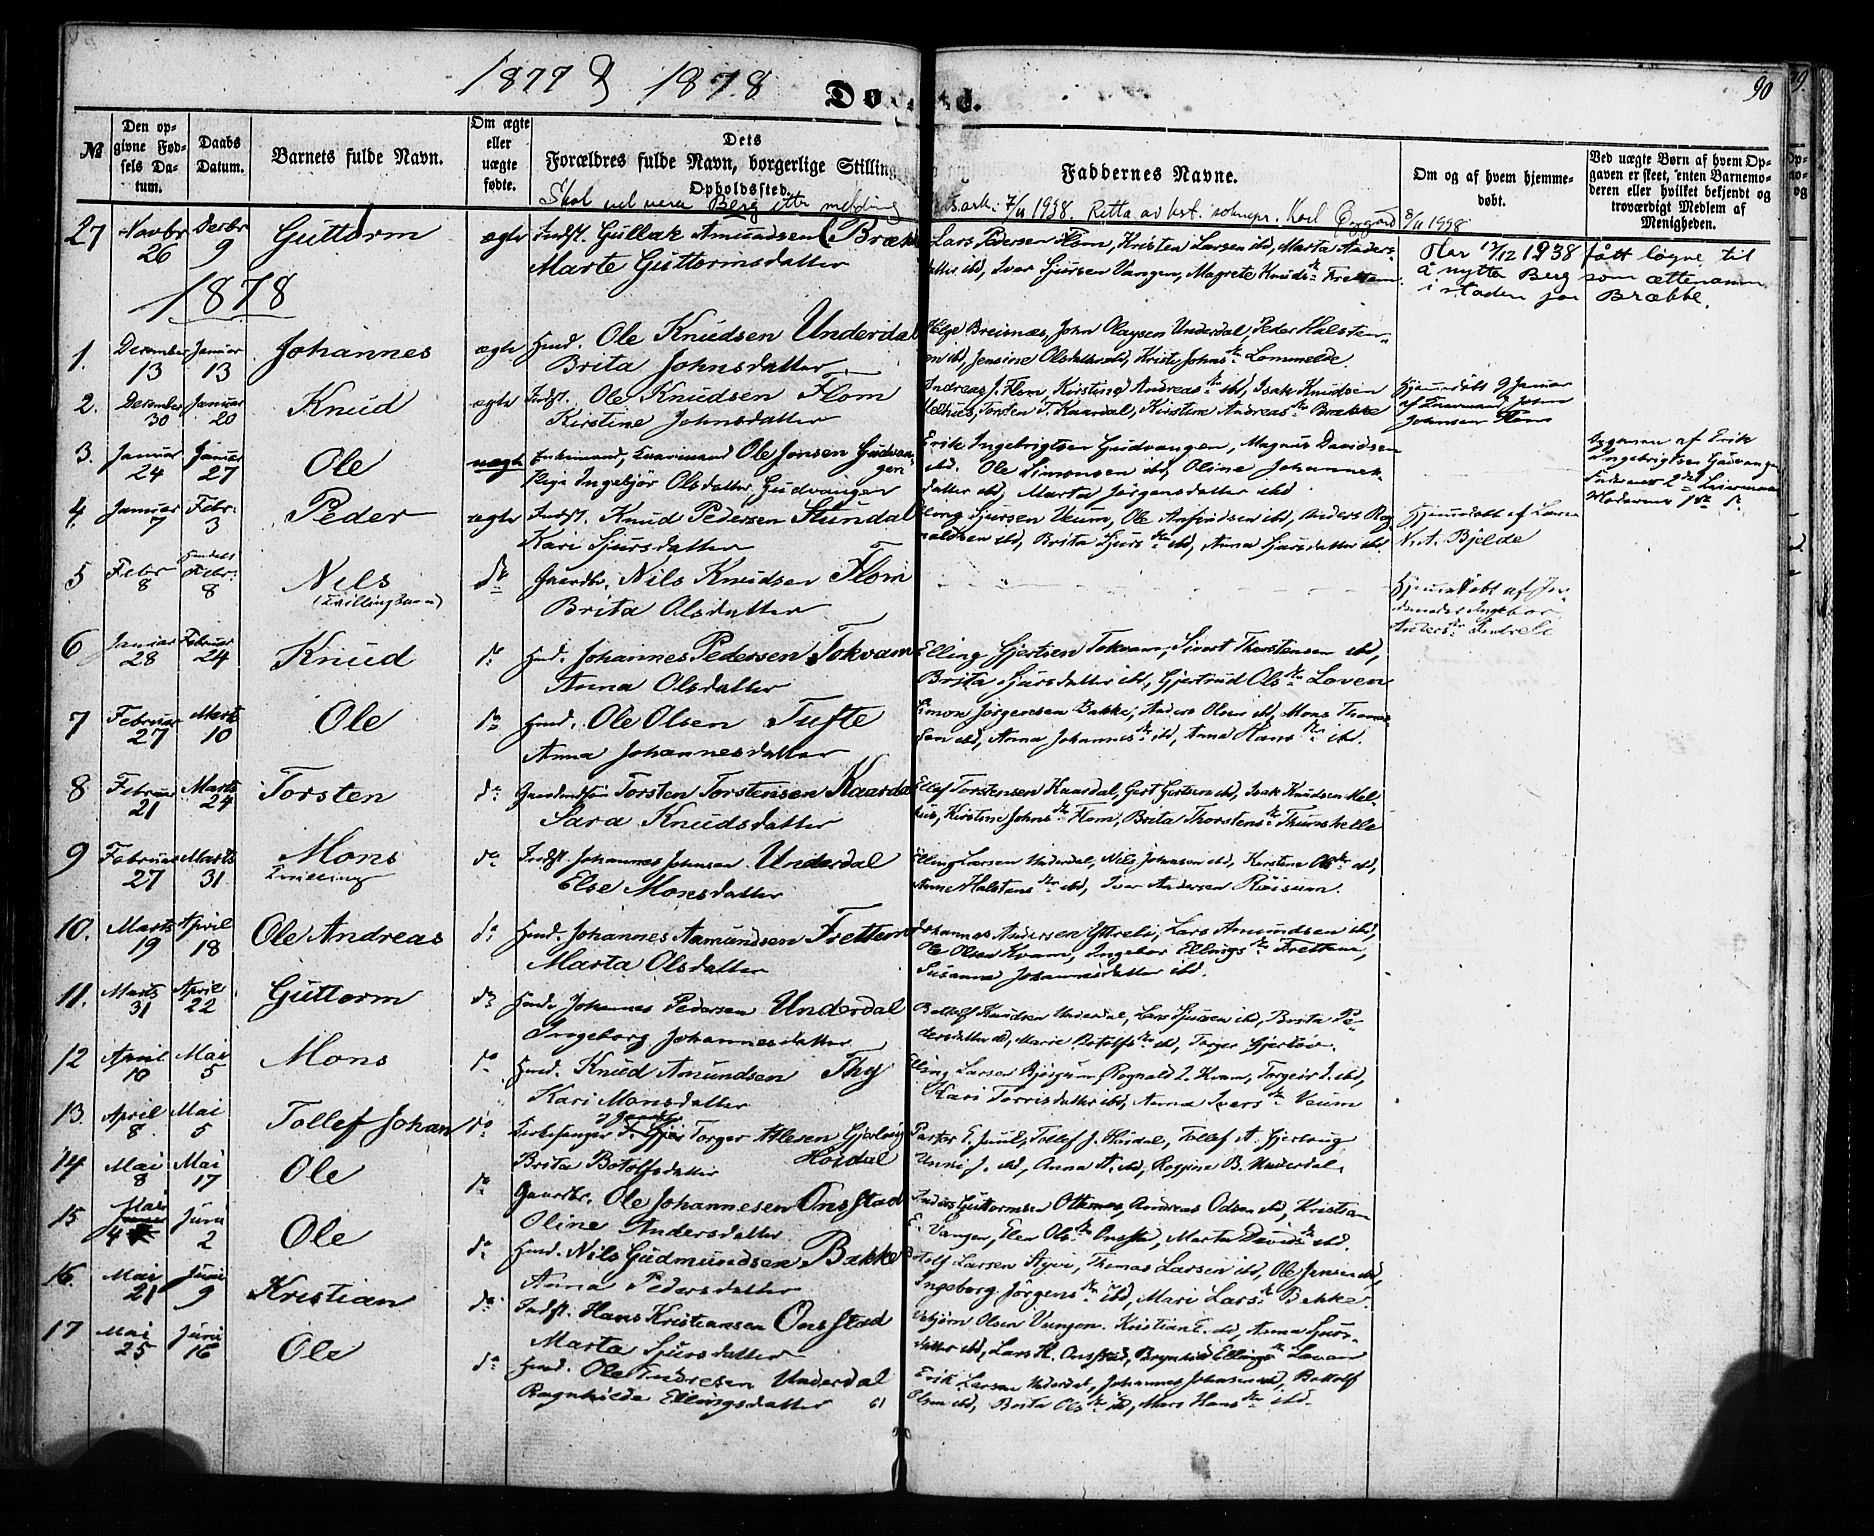 1877 & 1878
90
No
Den opgivne Fødsels Datum.
Daabs Datum.
Barnets fulde Navn.
Om ægte eller uægte fødte.
Dets Forældres fulde Navn, borgerlige Stilling
Opholdssted.
Faddernes Navne.
Om og af hvem hjemmedøbt.
Ved uægte Børn af hvem Opgaven er skeet, enten Barnemoderen eller hvilket bekjendt og troværdigt Medlem af Menigheden.
Skal vel vera Berg etter melding
7/11 1938. Retta av 8/11 1938
27 Novbr 26 Decbr 9 Guttorm ægte Indst. Gullak Amundsen (Bræk
Marte Guttormsdatter
Lars Pedersen Flom, Kristen Larsen ibd, Marta Anders-
datter ibd, Iver Sjursen Vangen, Magrete Knuds dtr Frettem
Har 13/12 1938 fått løyve til
å nytta Berg som ættenamn
i staden for Brække.
1878
1. December 13 Januar 13 Johannes ægte Husmd. Ole Knudsen Underdal
Brita Johnsdatter
Helge Breisnæs, John Olaysen Underdal, Peder Halsten-
sen ibd, Jensine Olsdatter ibd, Kristi Johns dtr Lommelde
2. December 30 Januar 20 Knud ægte Indst. Ole Knudsen Flom
Kirstine Johnsdatter
Andreas J. Flom, Kirstine Andreas dtr ibd, Isak Knudsen
Melhus, Torsten T. Kaardal, Kirstine Andreas dtr Brække
Hjemmedøbt 9 Januar
af John
Johnsen Flom
3. Januar 24 Januar 27 Ole uægte Enkemand, Ole Jonsen Gudvan-
gen
Pige Ingebjør Olsdatter Gudvangen
Erik Ingebrigtsen Gudvangen, Magnus Davidsen
ibd. Ole Simonsen ibd, Oline Johannes-
datter ibd, Marta Jørgensdatter ibd
Opgaven af Erik
Ingebrigtsen Gudvangen
Faderens 2det Leiermaal
Moderens 1ste
4. Januar 7 Febr. 3 Peder ægte Indst. Knud Pedersen Stundal
Kari Sjursdatter
Sjursen Veum, Ole Anfindsen ibd, Anders Rog-
naldsen ibd, Brita Sjurs dtr ibd, Anna Sjursdatter ibd.
Hjemmedøbt af Lærer
N. A. Bjelde
5 Febr 8 Febr. 8 Nils
(Tvillingbarn)
do Gaardbr. Nils Knudsen Flom
Brita Olsdatter
Hjemmedøbt af Jor-
demoder Ingebor
Anders dtr Indreli
6 Januar 28 Februar 24 Knud do Husmd. Johannes Pedersen Tokvam
Anna Olsdatter
Elling Gjertsen Tokvam, Sivert Thorstensen ibd,
Brita Sjursdatter ibd, Gjertrud Ols dtr Loven
7 Februar 27 Marts 10 Ole do Husmd. Ole Olsen Tufte
Anna Johannesdatter
Simon Jørgensen Bakke, Anders Olsen ibd, Mons Thomas-
sen ibd, Anna Johannes dtr ibd, Anna Hans dtr ibd.
8 Februar 21 Marts 24 Torsten do Torsten Torstensen Kaardal
Sara Knudsdatter
Ellef Torstensen Kaardal, Gert Gertsen ibd, Isak Knudsen Mel-
hus, Kirstine Johns dtr Flom, Brita Thorstens dtr Thunshelle
9 Februar 27 Marts 31 Mons
Tvilling
do Indst. Johannes Johnsen Underdal
Else Monsdatter
Elling Larsen Underdal, Nils Johnson ibd, Kirstine Ols dtr ibd,
Anne Halstens dtr ibd, Iver Andersen Röisum.
10. Marts 19 April 18 Ole Andreas do Husmd. Johannes Aamundsen Frettem
Marta Olsdatter
Johannes Andersen Yttreli, Lars Amundsen ibd,
Ole Olsen Kvam, Ingebor Ellings dtr Frettem,
Susanna Johannesdatter ibd.
11. Marts 31 April 22 Guttorm do Husmd. Johannes Pedersen Underdal
Ingeborg Johannesdatter
Bottolf Knudsen Underdal, Lars Sjursen ibd, Brita Pe-
dersdatter ibd, Marie Botolfs dtr ibd, Torger Gjerløv.
12 April 10 Mai 5 Mons do Husmd. Knud Amundsen Thy
Kari Monsdatter
Elling Larsen Bjørgum, Rognald L. Kvam, Torgeir J. ibd,
Kari Torrisdatter ibd, Anna Ivers dtr Veum
13. April 8 Mai 5 Tollef Johan do Kirkesanger Torger Atlesen Gjerløvig
Brita Botolfsdatter Hordal
Pastor E. Juul, Tollef J. Hordal, Tollef A. Gjerløvig,
Unni J. ibd, Anna A. ibd, Rogjine B. Underdal.
14 Mai 8 Mai 17 Ole do Gaardbr. Ole Johannesen Onstad
Oline Andersdatter
Anders Guttormsen Otternes, Andreas Odsen ibd, Kristian
E. Vangen, Elen Ols dtr Onstad, Marta Davids dtr ibd.
15 Mai 4 Juni 2 Ole do Husmd. Nils Gudmundsen Bakke
Anna Pedersdatter
Larsen Styvi, Thomas Larsen ibd, Ole Jensen ibd,
Ingeborg Jørgens dtr ibd, Mari Lars dtr Bakke.
16. Mai 21 Juni 9 Kristian do Indst. Hans Kristiansen Onstad
Marta Sjursdatter
Vebjørn Olsen Vangen. Kristian E. ibd, Anna Sjurs-
datter ibd, Lars H. Onstad, Brynhild Ellings dtr Loven
17 Mai 25 Juni 16 Ole do Husmd. Ole Andresen Underdal
Ragnhilde Ellingsdatter
Erik Larsen Underdal, Johannes Johnsen ibd, Bottolf
Olsen ibd, Brita Ols dtr ibd, Mari Hans dtr ibd.